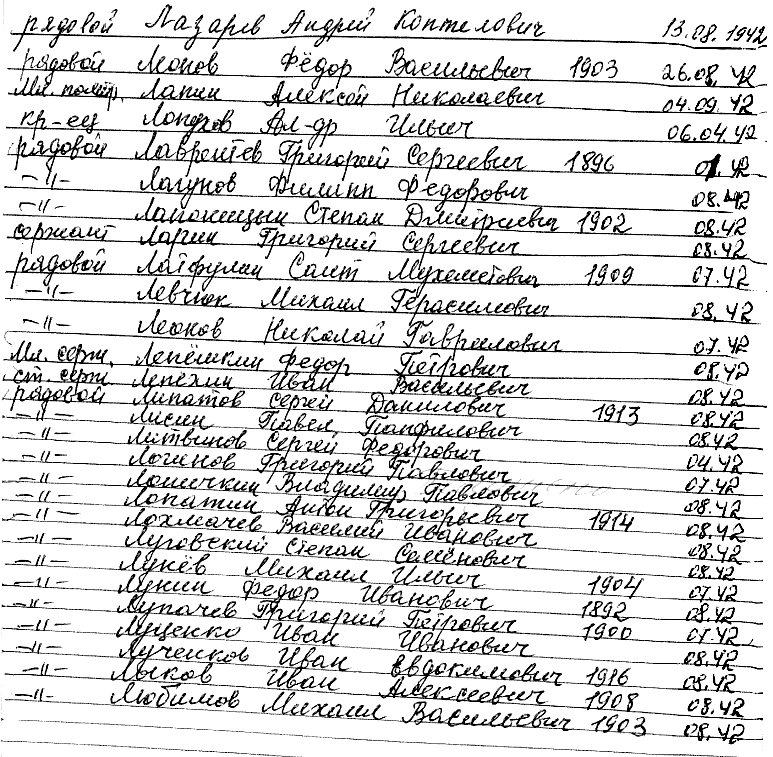 рядовой Лазарев Андрей Коптелович 13.08.1942
рядовой Леонов Фёдор Васильевич 1903 26.08.42
Мл. политр. Лапин Алексей Николаевич 04.09.42
кр-еец Ал-др Ильич 06.04.42
рядовой Лаврентев Григорий Сергеевич 1896 42
-"- Лагунов Филипп Федорович 08.42
-"- Степан Дмитриевич 1902 08.42
сержант Ларин Григорий Сергеевич 08.42
рядовой Латфулин Саит Мухеметович 1909 07.42
-"- Левчюк Михаил Герасимович 08.42
-"- Леонов Николай Гаврилович 07.42
Мл. серж. Лепёшкин Федор Петрович 08.42
ст. серж. Лепехин Иван Васильевич 08.42
рядовой Липатов Сергей Данилович 1913 08.42
-"- Лисин Павел Панфилович 08.42
-"- Литвинов Сергей Федорович 04.42
-"- Логинов Григорий Павлович 07.42
-"- Владимир Павлович 08.42
-"- Лопатин Григорьевич 1914 08.42
-"- Лохмачев Василий Иванович 08.42
-"- Луговский Степан Семёнович 08.42
-"- Лунёв Михаил Ильич 1904 07.42
-"- Лунин Федор Иванович 1892 08.42
-"- Лупачев Григорий Петрович 1900 07.42
-"- Луценко Иван Иванович 08.42
-"- Лученков Иван Евдокимович 1916 08.42
-"- Лыков Иван Алексеевич 1908 08.42
-"- Любимов Михаил Васильевич 1903 08.42